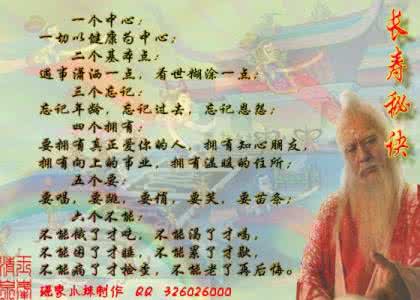 长寿秘诀
一个中心：
一切以健康为中心；
二个基本点：
遇事潇洒一点，看世糊涂一点；
三个忘记：
忘记年龄，忘记过去，忘记恩怨；
四个拥有：
要拥有真正爱你的人，拥有知心朋友，
拥有向上的事业，拥有温暖的住所；
五个要：
要唱、要跳、要俏、要笑、要苗条；
六个不能：
不能饿了才吃、不能渴了才喝，
不能困了才睡、不能累了才歇，
不能病了才检查、不能老了再后悔。
制作 QQ 326026000